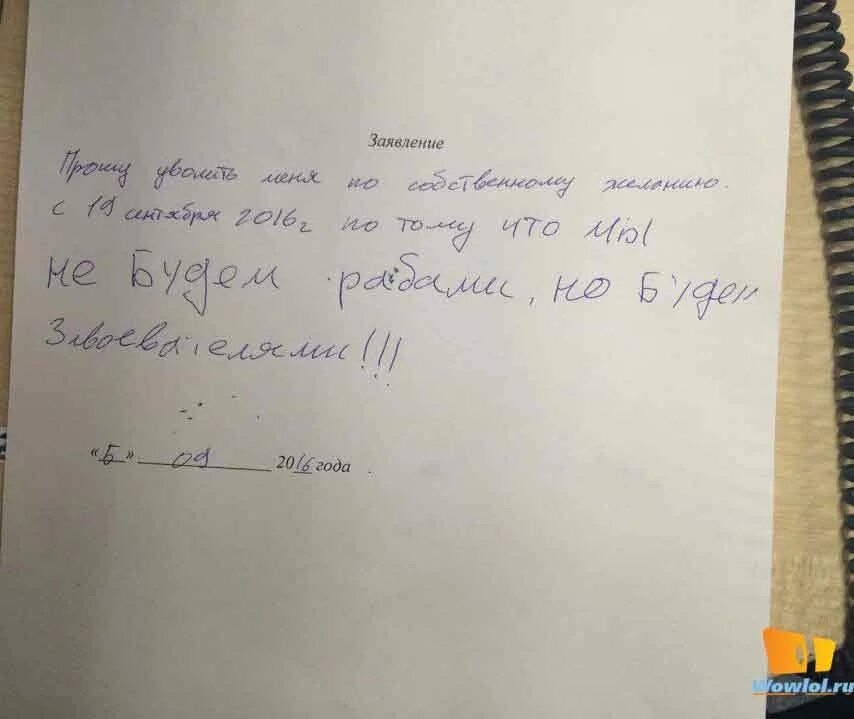 Заявление
Прошу уволить меня по собственному желанию.
с 19 сентября 2016г по тому что Мы
не Будем рабами, но Будем
Завоевателями!!!
«Б» 09 2016 года
Wowlol.ru